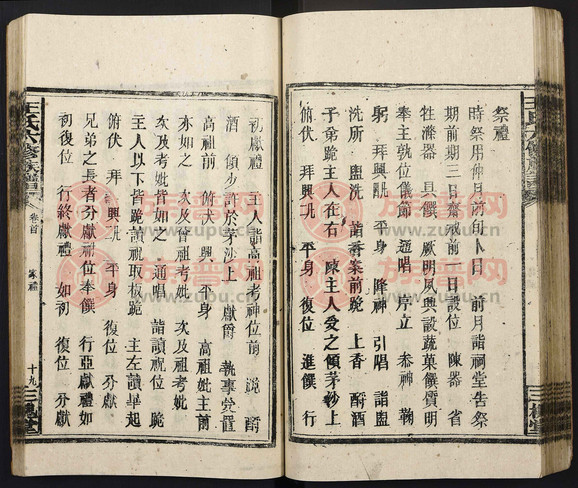 祭禮
時祭用仲月前旬卜日 前月詣祠堂告祭
期前期三日齋戒前一日設位 陳器 省
牲滌器 具饌 厥明夙興設蔬菓饌質明
奉主執位儀節 通唱 序立 叅神 鞠
躬 拜興 平身 降神 引唱 詣盥
洗所 盥洗 詣香案前跪 上香 酹酒
子弟跪主人在右 主人受之傾茅沙上
俯伏 興 平身 復位 進饌 行
初獻禮 主人詣高祖考神位前 跪 酹
酒 傾少許於茅沙上 獻爵 執事受置
高祖前 俯伏 興 平身 高祖妣主前
亦如之 次及曾祖考妣 次及祖考妣
次及考妣皆如之 通唱 詣讀祝位 跪
主人以下皆跪讀祝取板跪 主左讀畢起
俯伏 拜興 平身 復位 分獻
兄弟之長者分獻祔位奉饌 行亞獻禮如
初復位 行終獻禮 如初 復位 分獻
王氏六修族譜
卷首
家禮
十九
三槐堂
族谱网
www.zupu.cn